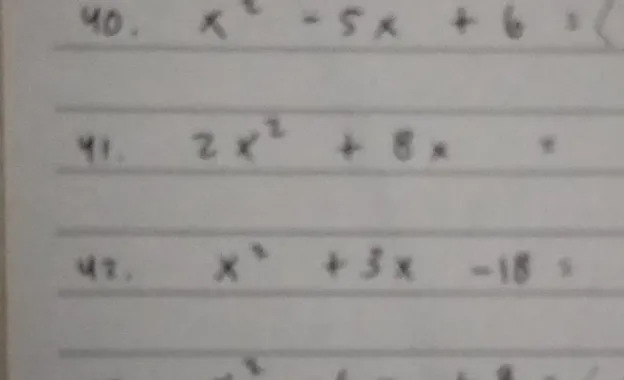 40. x² - 5x + 6 = (
41. 2x² + 8x =
42. x² + 3x - 18 =